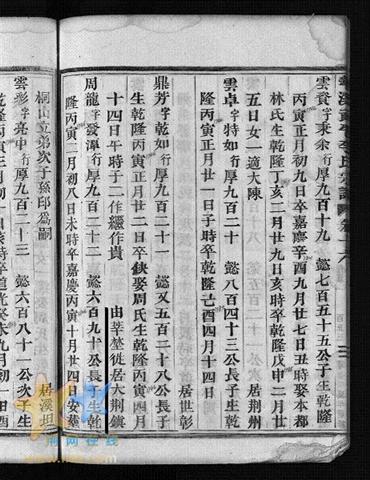 雲賁字秉余行厚九百十九　懿七百五十五公子生乾隆
丙寅正月初九日卒嘉慶辛酉九月廿七日丑時娶本都
林氏生乾隆丁亥二月廿九日亥時卒乾隆戊申二月廿
五日女一適大陳　居荆州
雲卓字特如行厚九百二十　懿八百四十三公長子生乾
隆丙寅正月廿一日子時卒乾隆己酉四月十四日
居世彰
鼎芳字乾如行厚九百二十一　懿又五百二十八公長子
生乾隆丙寅正月廿二日卒缺娶周氏生乾隆丙寅四月
十四日午時子二作繩作貴
由莘塍徙居大荆鎮
周龍字發潭行厚九百二十二　懿六百九十公長子生乾
隆丙寅二月初八日未時卒嘉慶丙寅十月廿四日安葬
桐山立弟次子孫印爲嗣　居溪坦
雲彩字亮中行厚九百二十三　懿六百八十一公次子生